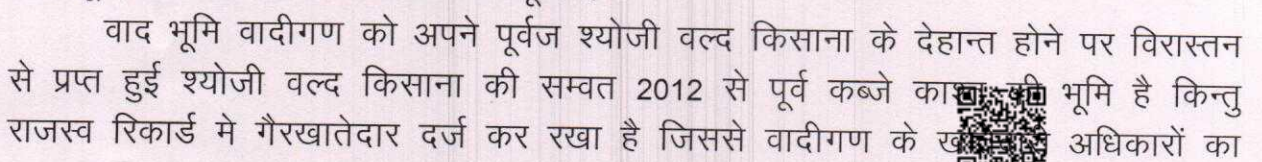 वाद भूमि वादीगण को अपने पूर्वज श्योजी वल्द किसाना के देहान्त होने पर विरास्तन
से प्रप्त हुई श्योजी वल्द किसाना की सम्वत 2012 से पूर्व कब्जे की भूमि है किन्तु
राजस्व रिकार्ड मे गैरखातेदार दर्ज कर रखा है जिससे वादीगण के अधिकारों का